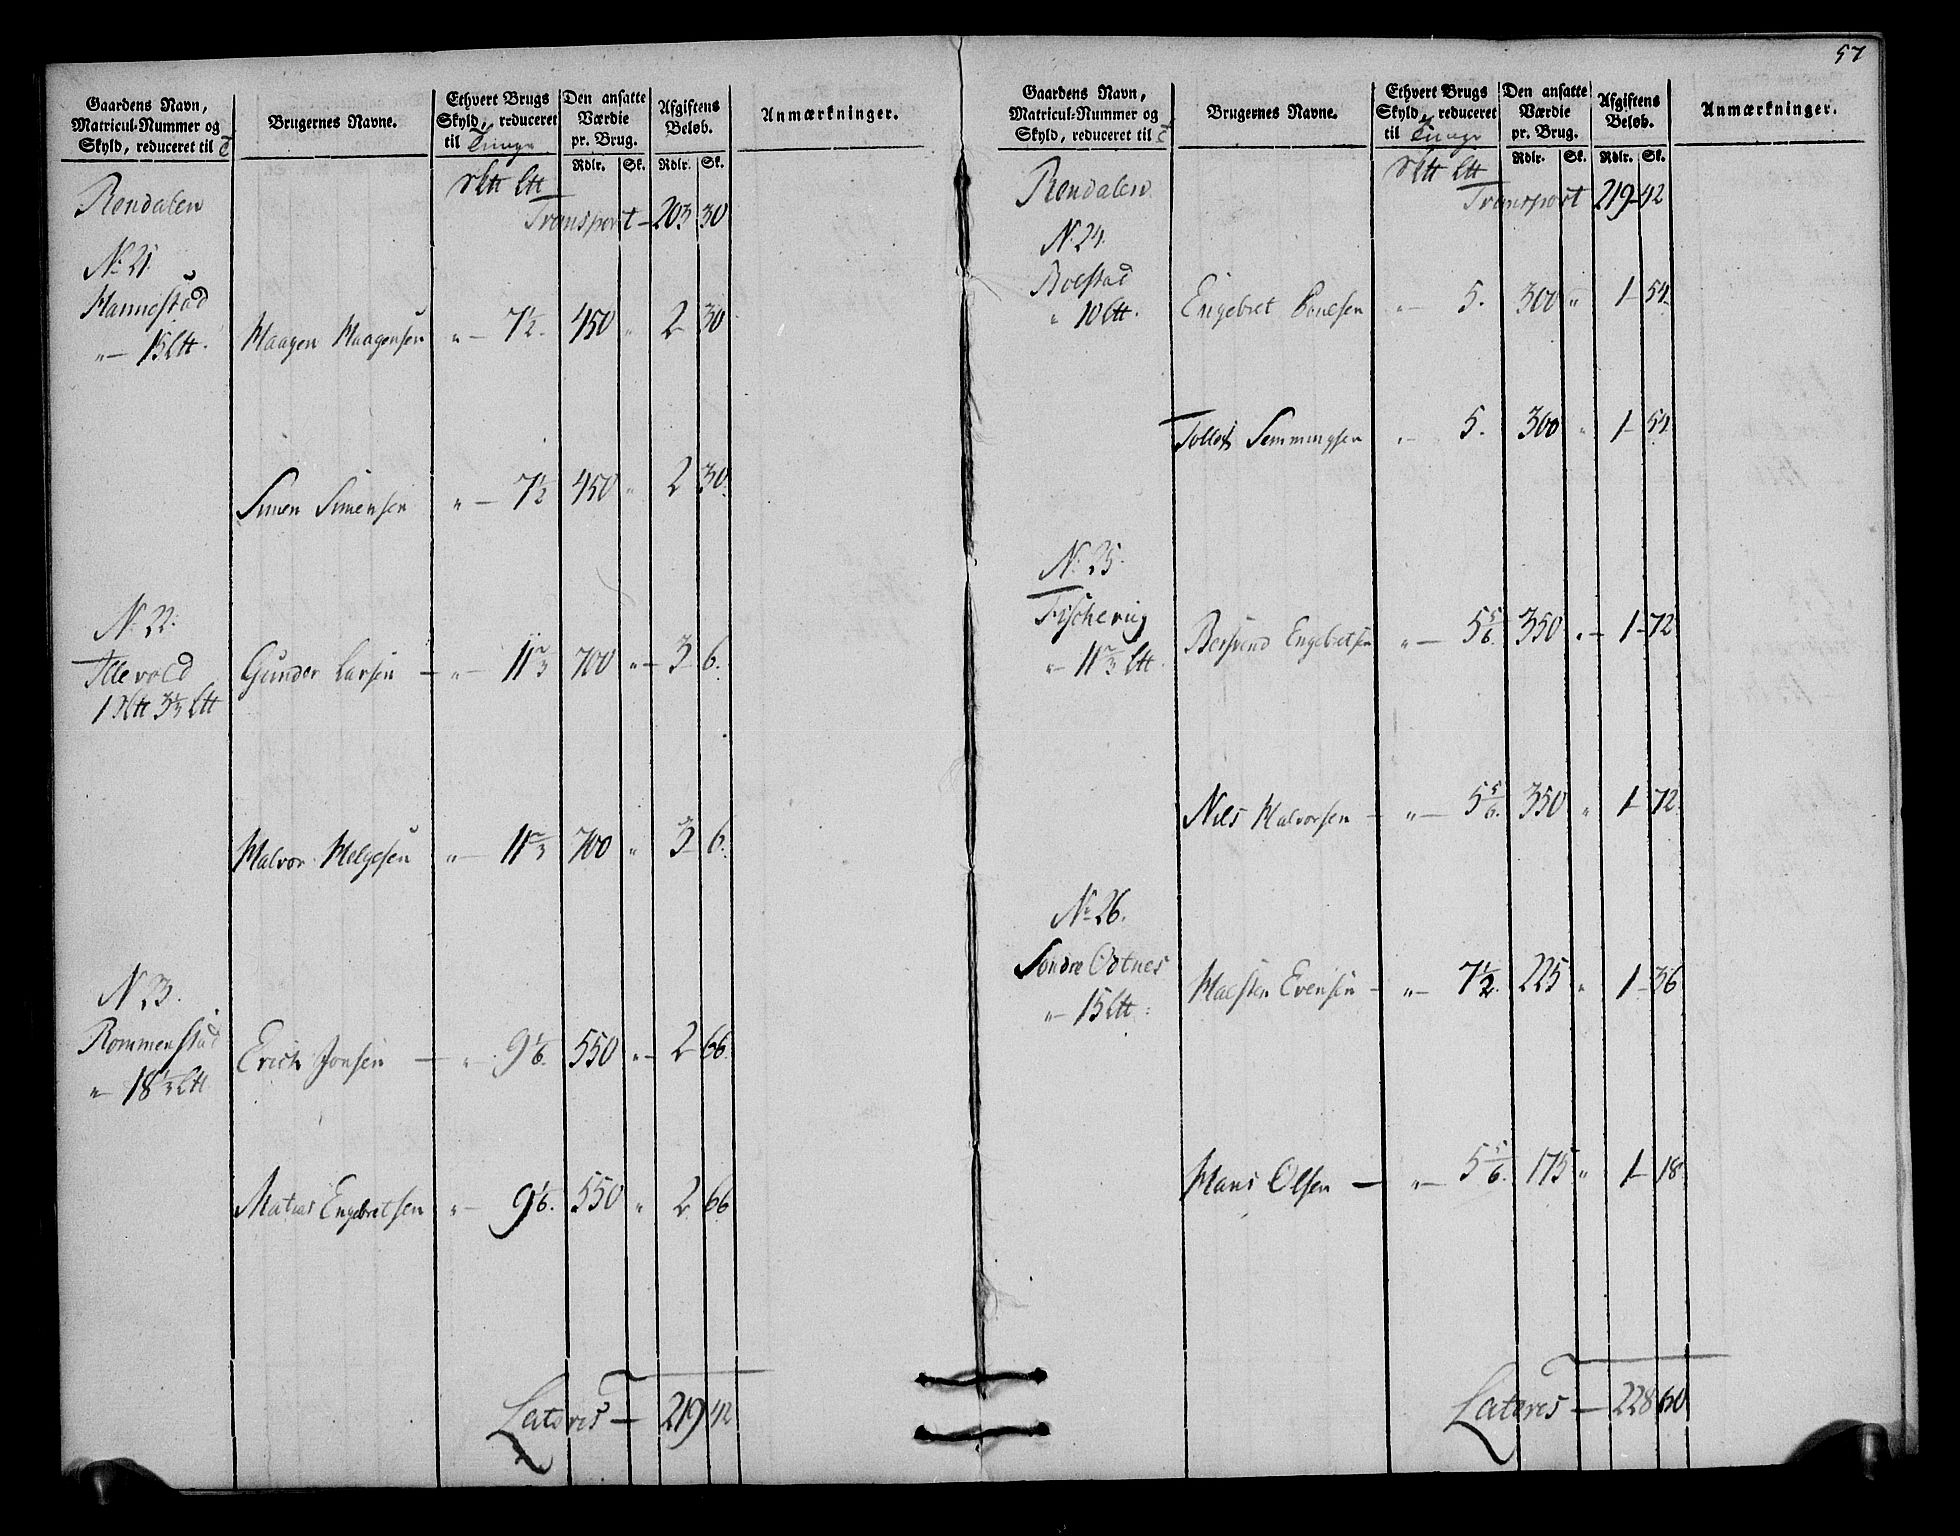 57
Gaardens Navn,
Matricul-Nummer og
Skyld, reduceret til T
Brugernes Navne.
Ethvert Brugs
Skyld, reduceret
til Tunge
Den ansatte
Værdie
pr. Brug.
Afgiftens
Beløb.
Anmærkninger.
Rdlr. Sk. Rdlr. Sk.
Rendalen
Transport - 203 30
No 21.
Hannestad
" 15 Ltt.
Haagen Haagensen " 7½. 450 " 2 30
Simen Simensen " 7½ 450 " 2 30.
No 22.
Illevold
1 Sktt 3⅓ Ltt
Gunder Larsen " 11⅔ 700 " 3 6.
Halvor Helgesen " 11⅔ 700 " 3 6.
N 23.
Rommenstad
" 18⅓ Ltt
Erich Jonsen " 9⅙. 550 " 2 66.
Matias Engebretsen " 9⅙. 550 " 2 66
Lateris - 219 42
Gaardens Navn,
Matricul-Nummer og
Skyld, reduceret til T
Brugernes Navne.
Ethvert Brugs
Skyld, reduceret
til Tunge
Den ansatte
Værdie
pr. Brug.
Afgiftens
Beløb.
Anmærkninger.
Rdlr. Sk. Rdlr. Sk.
Rendalen
Transport 219 42
N. 24.
Bolstad
" 10 Ltt.
Engebret Poulsen " 5. 300 " 1 54.
Tollef Semmingsen " 5. 300 " 1 54.
No 25.
Fischervig
" 11⅔ Ltt.
Bersvend Engebretsen " 5⅚. 350 " 1 72
Nils Halvorsen " 5⅚. 350 " 1 72.
No 26.
Søndre Odtnes
" 15 Ltt.
Halsten Evensen " 7½. 225 " 1 36
Hans Olsen " 5⅚. 175 " 1 18.
Lateris - 228 60